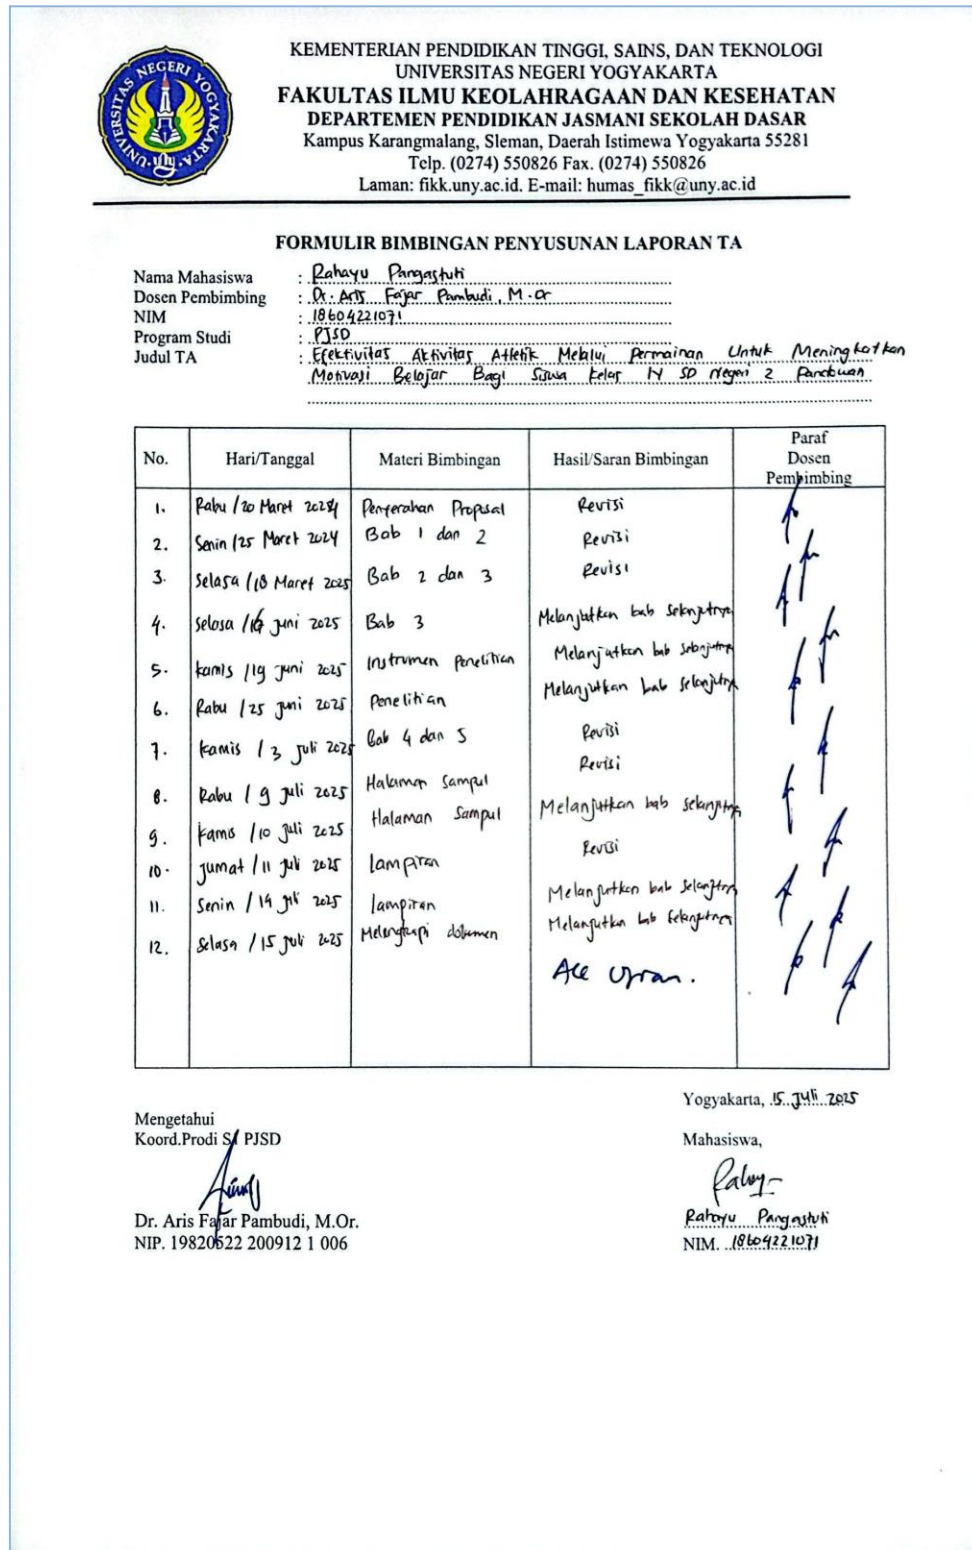 UNIVERSITAS NEGERI YOGYAKARTA
KEMENTERIAN PENDIDIKAN TINGGI, SAINS, DAN TEKNOLOGI
UNIVERSITAS NEGERI YOGYAKARTA
FAKULTAS ILMU KEOLAHRAGAAN DAN KESEHATAN
DEPARTEMEN PENDIDIKAN JASMANI SEKOLAH DASAR
Kampus Karangmalang, Sleman, Daerah Istimewa Yogyakarta 55281
Telp. (0274) 550826 Fax. (0274) 550826
Laman: fikk.uny.ac.id. E-mail: humas_fikk@uny.ac.id
FORMULIR BIMBINGAN PENYUSUNAN LAPORAN TA
Nama Mahasiswa : Rahayu Pangastuti
Dosen Pembimbing : Dr. Aris Fajar Pambudi, M.Or
NIM : 18604221071
Program Studi : PJSD
Judul TA : Efektivitas Aktivitas Atletik Melalui Permainan Untuk Meningkatkan
Motivasi Belajar Bagi Siswa Kelas IV SD Negeri 2
No. Hari/Tanggal Materi Bimbingan Hasil/Saran Bimbingan Paraf Dosen Pembimbing
1. Rabu / 20 Maret 2024 Penyerahan Proposal Revisi
2. Senin / 25 Maret 2024 Bab 1 dan 2 Revisi
3. Selasa / 18 Maret 2025 Bab 2 dan 3 Revisi
4. Selasa / Juni 2025 Bab 3 Melanjutkan bab selanjutnya
5. Kamis / 19 Juni 2025 Instrumen Penelitian Melanjutkan bab selanjutnya
6. Rabu / 25 Juni 2025 Penelitian Melanjutkan bab selanjutnya
7. Kamis / 3 Juli 2025 Bab 4 dan 5 Revisi
8. Rabu / 9 Juli 2025 Halaman Sampul Revisi
9. Kamis / 10 Juli 2025 Halaman Sampul Melanjutkan bab selanjutnya
10. Jumat / 11 Juli 2025 Lampiran Revisi
11. Senin / 14 Juli 2025 Lampiran Melanjutkan bab selanjutnya
12. Selasa / 15 Juli 2025 Melengkapi dokumen Melanjutkan bab selanjutnya
Acc Ujian.
Yogyakarta, 15 Juli 2025
Mengetahui
Koord.Prodi S1 PJSD
Mahasiswa,
Dr. Aris Fajar Pambudi, M.Or.
NIP. 19820522 200912 1 006
Rahayu Pangastuti
NIM. 18604221071